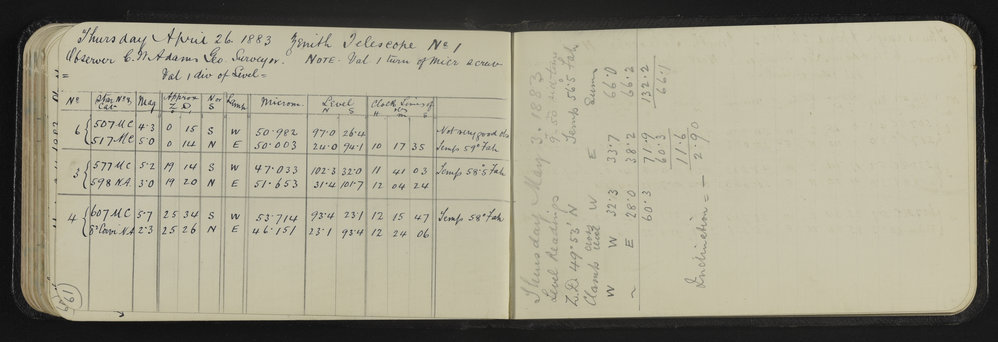 Thursday April 26 1883 Zenith Telescope No 1
Observer C. W. Adams Geo. Surveyor. NOTE. Val 1 turn of Micr screw
=
Val 1 div of Level =
No Star No & Cat: Mag Approx Z D. N or S Lamp Microm Level N S Clock Times of
H m s
6 { 507 MC 4.3 0 15 S W 50.982 97.0 26.4 Not very good obs
517 MC 5.0 0 14 N E 50.003 24.0 94.1 10 17 35 Temp 59° Fah
577 MC 5.2 19 14 S W 47.033 102.3 32.0 11 41 03 Temp 58°5 Fah
598 NA. 3.0 19 20 N E 51.653 31.4 101.7 12 04 24
4 { 607 MC 5.7 25 34 S W 53.714 93.4 23.1 12 15 47 Temp 58° Fah
NA 2.3 25 26 N E 46.151 23.1 93.4 12 24 06
Thursday May 3. 1883
Level Readings
Z.D. 49°53' N Temp 56°5 Fah
Clamp W E Sums
W 32.3 33.7 66.0
E 28.0 38.2 66.2
60.3 71.9 132.2
60.3 66.1
11.6
Inclination = 2.90